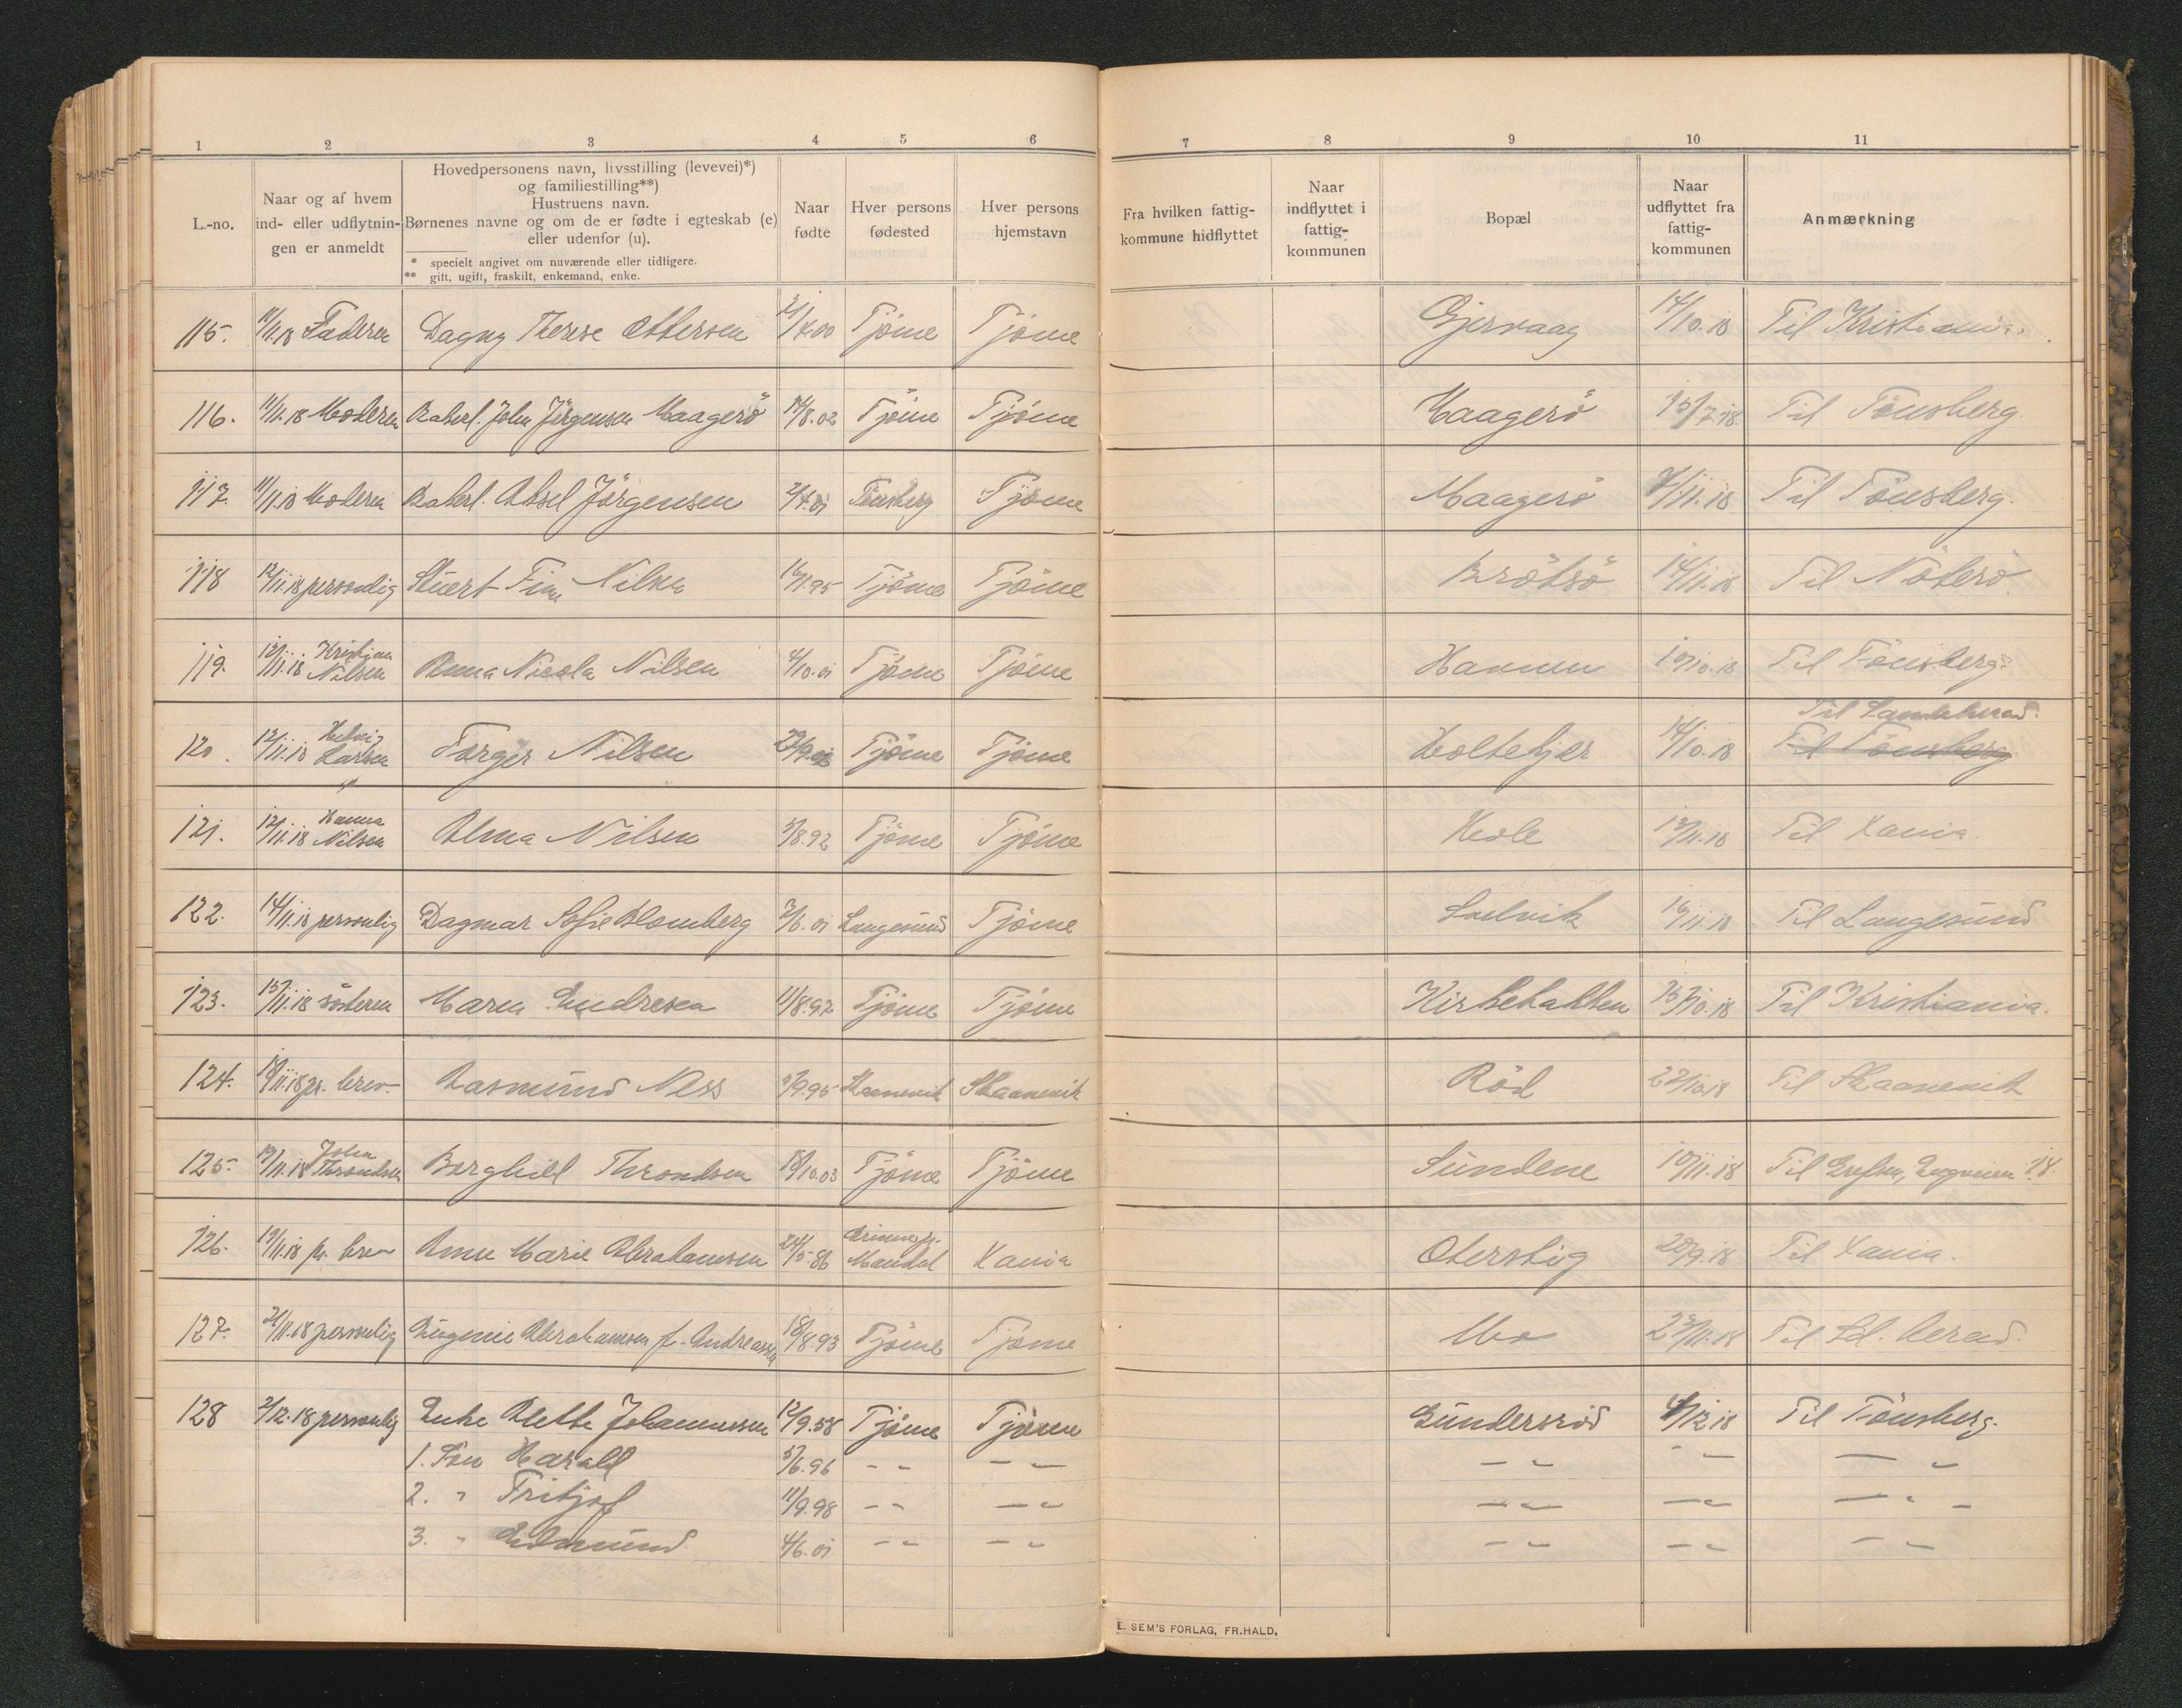 1 2 3 4 5 6 7 8 9 10 11
L.-no.
Naar og af hvem
ind- eller udflytnin-
gen er anmeldt
Hovedpersonens navn, livsstilling (levevei)*)
og familiestilling**)
Hustruens navn.
Børnenes navne og om de er fødte i egteskab (e)
eller udenfor (u).
* specielt angivet om nuværende eller tidligere.
** gift, ugift, fraskilt, enkemand, enke.
Naar
fødte
Hver persons
fødested
Hver persons
hjemstavn
Fra hvilken fattig-
kommune hidflyttet
Naar
indflyttet i
fattig-
kommunen
Bopæl
Naar
udflyttet fra
fattig-
kommunen
Anmærkning
115. 11/11.18 Faderen Dagny Therese Ottersen 2/4.00 Tjöme Tjöme Gjervaag 14/10.18 Til Kristiania.
116. 11/11.18 Moderen Rakerl. John Jörgensen Maagerö 14/8.02 Tjöme Tjöme Maagerö 15/7.18. Til Tönsberg.
117. 11/11.18 Moderen Rakerl. Aksel Jörgensen 2/4.01 Tönsberg Tjöme Maagerö 7/11.18 Til Tönsberg.
118 12/11.18 personlig Finn Nilsen 16/1.95 Tjöme Tjöme Brötsö 14/11.18 Til Nöterö.
119. 12/11.18 Kristian Nilsen Anna Nicola Nilsen 4/10.01 Tjöme Tjöme Havnen 10/10.18 Til Tönsberg.
Til Sandeherad.
120. 12/11.18 Larsen Torger Nilsen Tjöme Tjöme Holtekjær 14/10.18 Til Tönsberg
121. 12/11.18 Hanna Nilsen Alma Nilsen 5/8.92 Tjöme Tjöme Hvole 13/11.18 Til Xania.
122. 14/11.18 personlig Dagmar Sofie Blomberg 3/6.01 Langesund Tjöme Solvik 16/11.18 Til Langesund
123. 15/11.18 SöSteren Maren Endresen 11/8.92 Tjöme Tjöme Kirkebakken 15/10.18 Til Kristiania.
124. 18/11.18 pr. brev Rasmund Ness 5/9.95 Skaanevik Skaanevik Röd 22/10.18 Til Skaanevik
125. 19/11.18 John Throndsen Borghild Throndsen 18/10.03 Tjöme Tjöme Sundene 19/11.18 Til Grefsen, Engveien 14.
126. 19/11.18 pr. brev Anne Marie Abrahamsen 24/5.86 Mandal Xania Oterstig 20/9.18 Til Xania.
127. 21/11.18 personlig Eugenie Abrahamsen f. Andreassen 18/8.93 Tjöme Tjöme Mo 23/11.18 Til Sd. herad.
128 2/12.18 personlig Enke Alette Johannessen 12/9.58 Tjöme Tjöme Gundersröd 4/12.18 Til Tönsberg.
1. Sön Harald 5/6.96 - " - " - " - " - "
2. " Fritjof 11/9.98 - " - " - " - " - " -
3. " Edmund 4/6.01 - " - " - " - " - "
E. SEM'S FORLAG, FR.HALD.